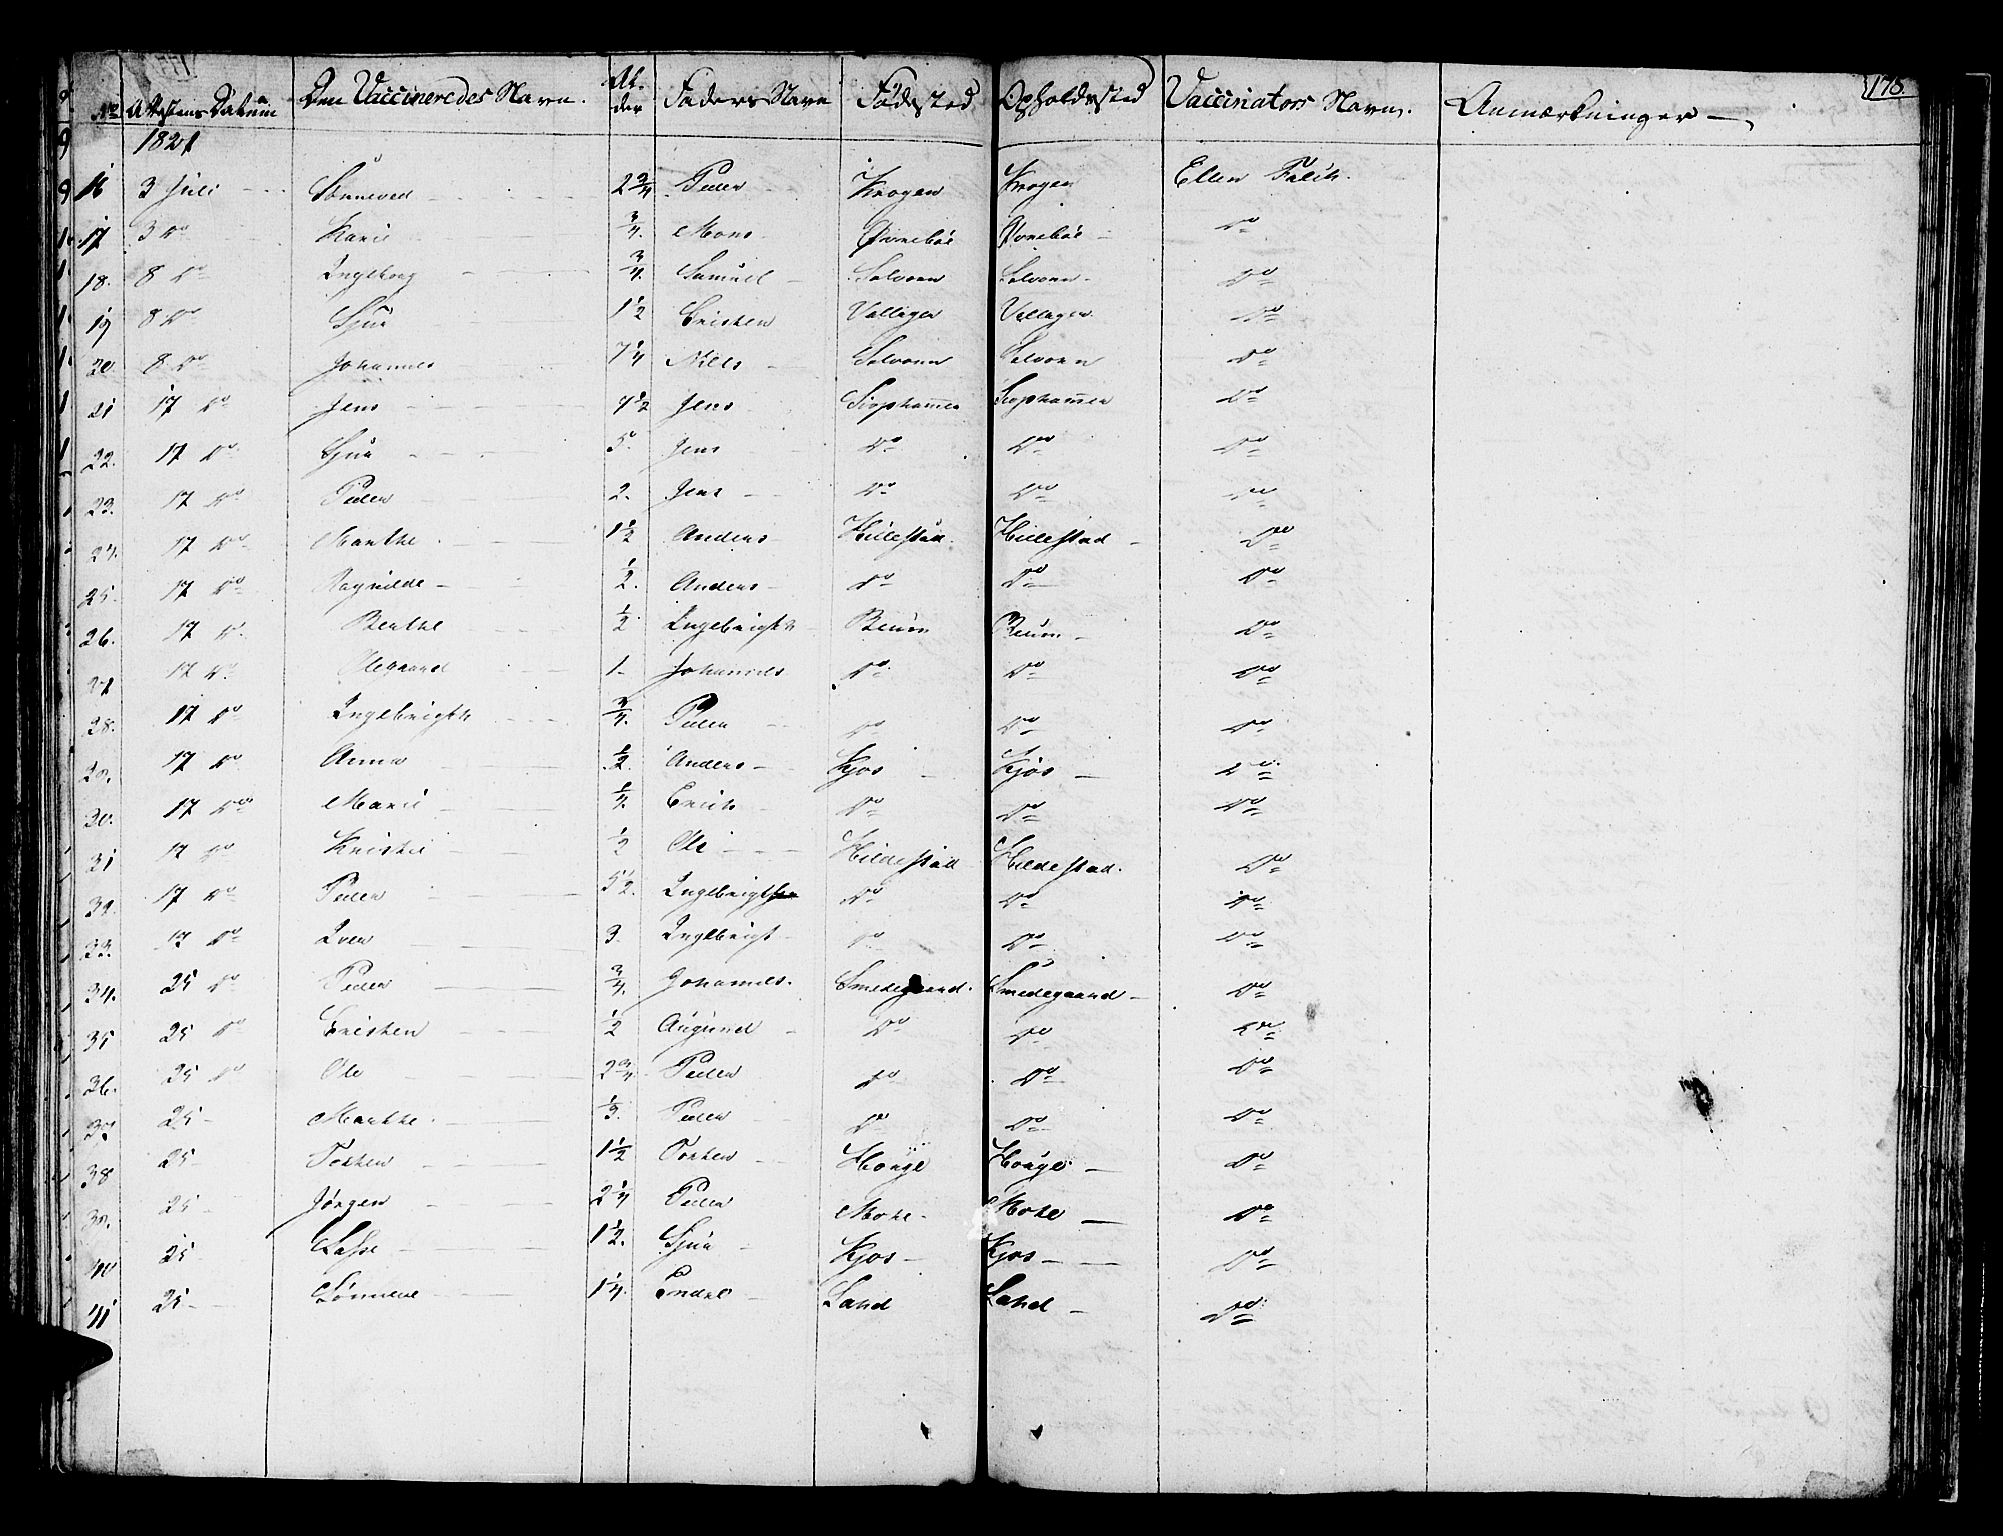 178.
No Attestens Datum Den Vaccineredes Navn. Alder Faders Navn Fødested Opholdssted Vaccinators Navn. Anmærkninger
1821
16 3 Juli Sønneved 2 3/4 Peder Krogen Krogen Ellen Falch.
17 3 do Kari 3/4 Mons do
18. 8 do Ingeborg 3/4 Samuel Solvorn Solvorn do
19 8 do Sjur 1 1/2 Cristen Vollagen Vollagen do
20 8 do Johannes 7 1/4 Niels Solvorn Solvorn do
21 17 do Jens 7 1/2 Jens do
22. 17 do Sjur 5 Jens do do do
23. 17 do Peder 2. Jens do do do
24. 17 do Marthe 1 1/2 Anders Hillestad Hillestad do
25. 17 do Ragnilde 1/2 Anders do do do
26. 17 do Berthe 1/2 Ingebrigt do
27 17 do Olegaard 1 Johannes do do do
28. 17 do Ingebrigt 3/4 Peder do do do
29. 17 do Anna 1/2 Anders Kjos Kjos do
30. 17 do Marie 1/4 Erich do do do
31 17 do Kristi 1/2 Ole Hildestad Hildestad. do
32. 17 do Peder 5 1/2 Ingebrigt do do do
33. 17 do Iver 3 Ingebrigt do do do
34. 25 do Peder 3/4 Johannes. Smedegaard. Smedegaard do
35 25 do Cristen 1/2 Augund do do do
36. 25 do Ole 2 3/4 Peder do do do
37 25 Marthe. 1/3. Peder do do do
38 25 Torsten 1 1/2 Torsten Houge Houge do
39. 25 Jørgen 2 1/4 Peder Mohe Mohe do
40 25 Lasse 1 1/2. Sjur Kjos Kjos do
41 25 Sønneve 1 1/4 Endre Land Land do